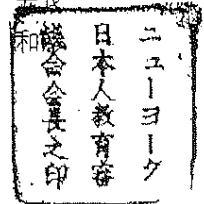 ニューヨーク
日本人教育審
議会会長之印
和